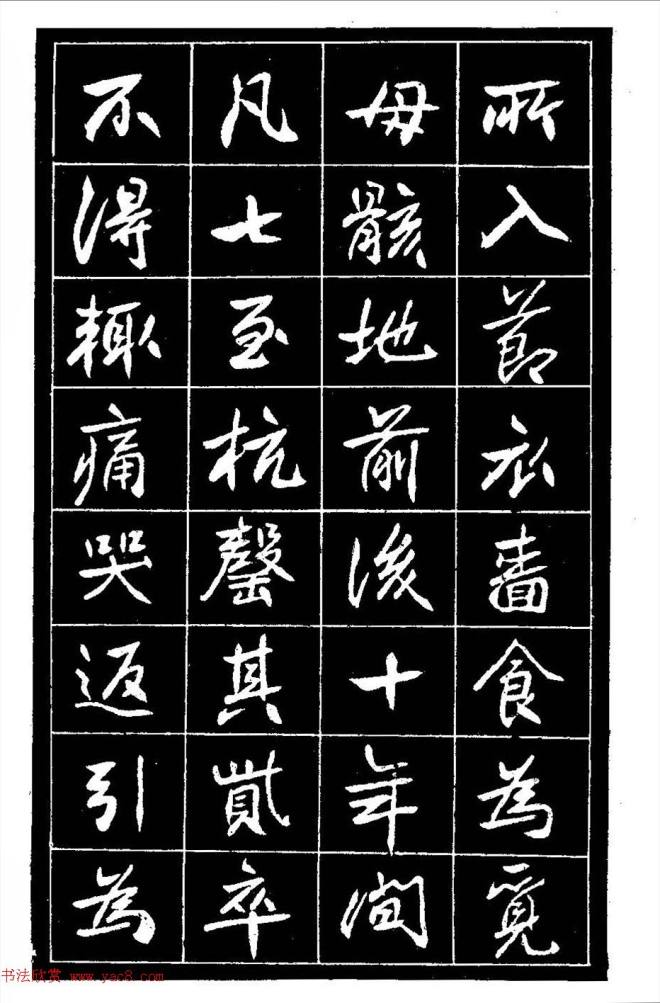 所入莭衣啬食為覔
母骸地前後十年間
凡七至杭罄其貲卒
不得輙痛哭返引為
书法欣赏 www.yac8.com